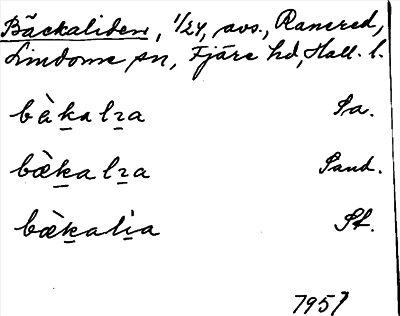 Bäckaliden, 1/24, avs., Ranered,
Lindome sn, Fjäre hd, Hall. l.
bæ̀ḵalɿ̱a Sa.
bæ̀ḵalɿ̱a Sand.
bæ̀ḵali̱a Sf.
7957